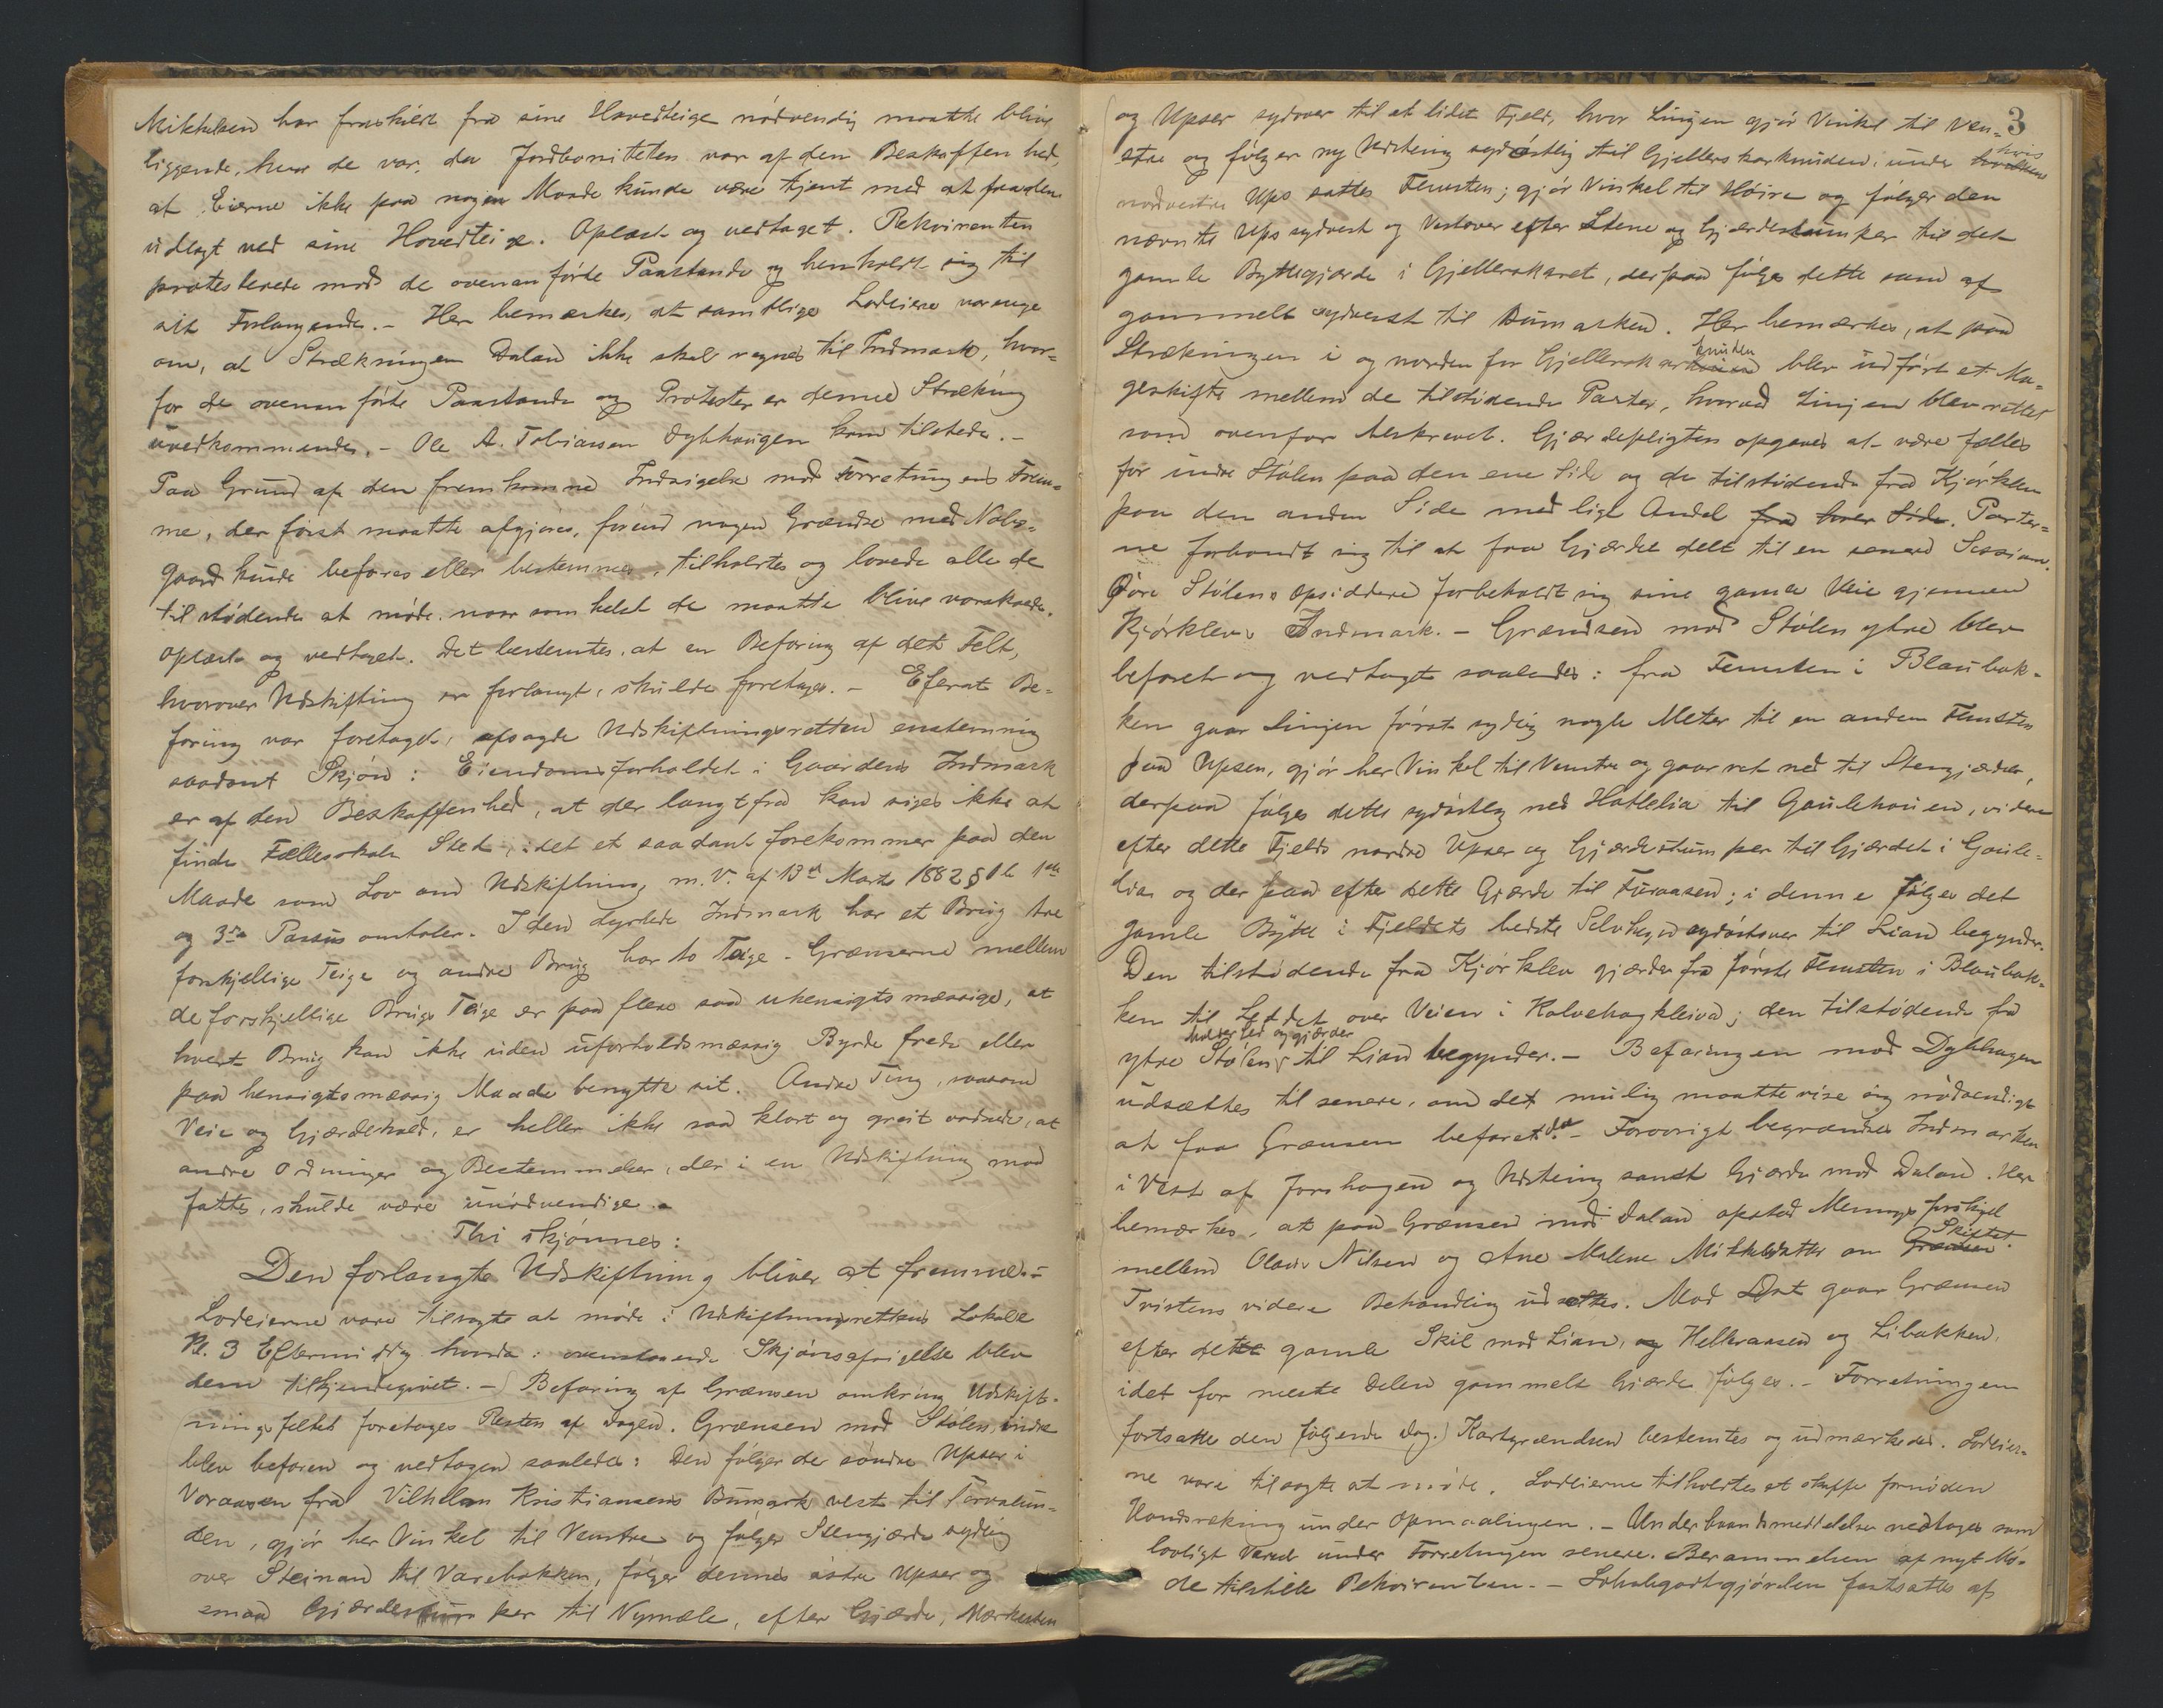 Mikkelsen har fraskilt fra sine Hovedteige nödvendig maatte blive
liggende, hvor de var, da Jordboniteten var af den Beskaffenhed,
at Eierne ikke paa nogen Maade kunde være tjent med at faa den
udlagt ved sine Hovedteige. Oplæst og vedtaget. Rekvirenten
protesterede mod de ovenanförte Paastande og henholdt sig til
sit Forlangende. – Her bemærkes, at samtlige Lodeiere var enige
om, at Strækningen Daland ikke skal regnes til Indmark, hvor-
for de ovenanförte Paastande og Protester er denne Strækning
uvedkommende. – Ole A. Tobiassen Dybhaugen kom tilstede. –
Paa Grund af den fremkomne Indsigelse mod Forretningens Frem-
me, der först maatte afgjöres, förend nogen Grændse med Nabo-
gaard kunde befares eller bestemmes, tilholdtes og lovede alle de
tilstödende at möde, naar som helst de maatte blive varskuede.
Oplæst og vedtaget. Det bestemtes, at en Befaring af det Felt,
hvorover Udskiftning er forlangt, skulde foretages. – Efterat Be-
faring var foretaget, afsagde Udskiftningsretten enstemmig
saadant Skjön: Eiendomsforholdet i Gaardens Indmark
er af den Beskaffenhed, at der langt fra kan siges ikke at
finde Fællesskab Sted, idet et saadant forekommer paa den
Maade som Lov om Udskiftning m. V. af 13de Marts 1882 § 1 b 1ste
og 3die Passus omtaler. I den dyrkede Indmark har et Brug tre
forskjellige Teige og andre Brug har to Teige. Grænserne mellem
de forskjellige Brugs Teige er paa flere saa uhensigtsmæssige, at
hvert Brug kan ikke uden uforholdsmæssig Byrde frede eller
paa hensigtsmæssig Maade benytte sit. Andre Ting, saasom
Veie og Gjærdehold, er heller ikke saa klart og greit ordnede, at
andre Ordninger og Bestemmelser, der i en Udskiftning maa
fattes, skulde være unödvendige. –
Thi skjönnes:
Den forlangte Udskiftning bliver at fremme. –
Lodeierne vare tilsagte at möde i Udskiftningsrettens Lokale
Kl. 3 Eftermiddag, hvorda ovenstaaende Skjönsafsigelse blev
dem tilkjendegivet. – Befaring af Grænsen omkring Udskift-
ningsfeltet foretages Resten af Dagen. Grænsen mod Stölen indre
blev befaren og vedtagen saaledes: Den fölger de söndre Upser i
Voraasen fra Vilhelm Kristiansens Bumark vest til Torvalun-
den, gjör her Vinkel til Venstre og fölger Stengjærde sydlig
over Steinan til Varebakken, fölger dennes östre Upser og
smaa Gjærdestumper til Nymæle, efter Gjærde, Merkesten
3
og Upser sydover til et lidet Fjeld, hvor Linjen gjör Vinkel til Ven-
stre og fölger ny Udsteing sydöstlig til Gjellerskarknuden, under hvis
nordvestre Ups sattes Femsten; gjör Vinkel til Höire og fölger den
nævnte Ups sydvest og Vestover efter Stene og Gjærdestumper til det
gamle Byttesgjærde i Gjellerskaret, derpaa fölges dette samt af
gammelt sydvest til Dumarken. Her bemærkes, at paa
Strækningen i og norden for Gjellerskarknuden blev udfört et Ma-
geskifte mellem de tilstödende Parter, hvorved Linjen blev rettet
som ovenfor beskrevet. Gjærdepligten opgaves at være fælles
for indre Stölen paa den ene Side og de tilstödende fra Kjörklev
paa den anden Side med ligt Andel fra hver Side. Parter-
ne forbandt sig til at faa Gjærdet delt til en senere Session.
Övre Stölens Opsiddere forbeholdt sig sine gamle Veie gjennem
Kjörklevs Indmark. – Grændsen mod Stölen ytre blev
befaret og vedtagt saaledes: fra Femsten i Blaubak-
ken gaar Linjen först sydlig nogle Meter til en anden Femsten
paa Upsen, gjör her Vinkel til Venstre og gaar ret ned til Stengjærdet,
derpaa fölges dette sydöstlig ned Hatlelia til Gaulehauen, videre
efter dette Fjelds nordre Upser og Gjærdestumper til Gjærdet i Gaule-
lia og derpaa efter dette Gjærde til Furaasen; i denne fölges det
gamle Bytte i Fjeldets bedste Selvhegn sydöstover til Lian begynder.
Den tilstödende fra Kjörklev gjærder fra förste Femsten i Blaubak-
ken til Leddet over Veien i Kalvehagkleiva; den tilstödende fra
holder led og gjærder
ytre Stölen til Lian begynder. – Befaringen mod Dybhagen
udsættes til senere, om det mulig maatte vise sig nödvendigt
at faa Grænsen befaret da. – Forövrigt begrændses Indmarken
i Vest af Jorshagen og Udsteing samt Gjærde mod Daland. Her
bemærkes, at paa Grænsen mod Daland opstod Meningsforskjel
mellem Olaus Nilsen og Ane Malene Mikkelsdatter om Grænsen Skiftet.
Tvistens videre Behandling udsattes. Mod Öst gaar Grænsen
efter dette gamle Skil mod Lian, og Helkaasen og Libakken,
idet for meste Delen gammelt Gjærde fölges. – Forretningen
fortsatte den fölgende Dag. Kartgrændsen bestemtes og udmærkedes. Lodeier-
ne vare tilsagte at möde. Lodeierne tilholdtes at skaffe fornöden
Haandsrækning under Opmaalingen. – Underhaandsmeddelelse vedtoges som
lovligt Varsel under Forretningen senere. Berammelsen af nyt Mö-
de tilstilles Rekvirenten. – Lokalegodtgjörelsen fastsattes af